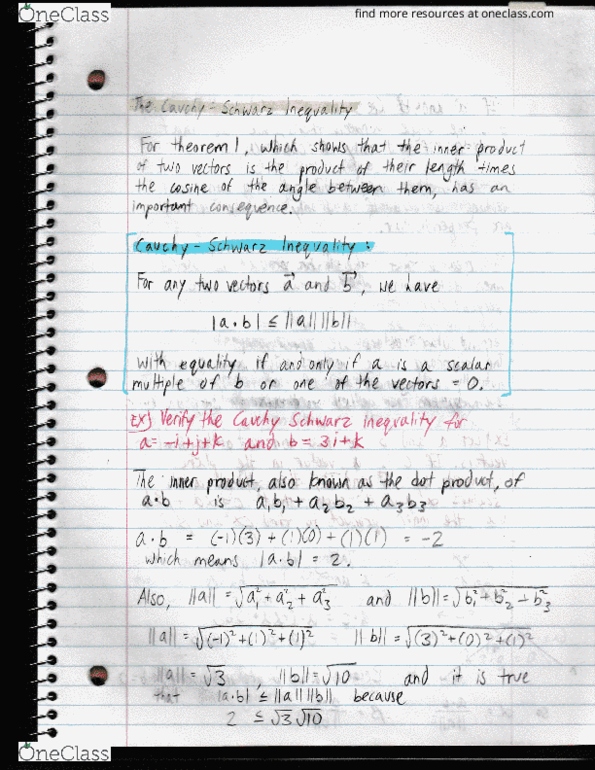 OneClass
find more resources at oneclass.com
The Cauchy-Schwarz Inequality
For theorem 1, which shows that the inner product
of two vectors is the product of their length times
the cosine of the angle between them, has an
important consequence.
Cauchy-Schwarz Inequality:
For any two vectors a⃗ and b⃗, we have
|a·b| ≤ ||a|| ||b||
with equality if and only if a is a scalar
multiple of b or one of the vectors = 0.
EX) Verify the Cauchy Schwarz inequality for
a= -i+j+k and b = 3i+k
The inner product, also known as the dot product, of
a·b is a₁b₁ + a₂b₂ + a₃b₃
a·b = (-1)(3) + (1)(0) + (1)(1) = -2
which means |a·b| = 2.
Also, ||a|| = √a₁² + a₂² + a₃² and ||b|| = √b₁² + b₂² - b₃²
||a|| = √(-1)² + (1)² + (1)² ||b|| = √(3)² + (0)² + (1)²
||a|| = √3 ||b|| = √10 and it is true
that |a·b| ≤ ||a|| ||b|| because
2 ≤ √3 √10
OneClass